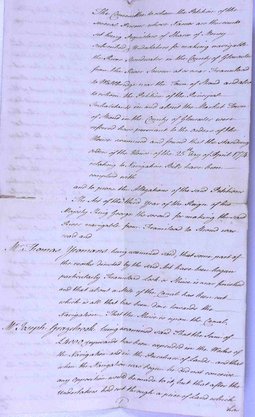 The Committee to whom the Petition of the
several Persons whose Names are thereunto
set being Inquisitors of Shares of Money
Subscribed, Undertakers for making navigable
the River Stroudwater in the County of Gloucester
from the River Severn at or near Framiload
to Wallbridge near the Town of Stroud and also
to whom the Petition of the Principal
Inhabitants in and about the Market Town
of Stroud in the County of Gloucester were
referred have pursuant to the orders of the
House examined and found that the Standing
orders of the House of the 25th day of April 1774
relating to Navigation Bills have been
complied with
and to prove the Allegations of the said Petitions
The Act of the third Year of the Reign of his
Majesty King George the second for making the said
River navigable from Framiload to Stroud was
read and
Mr. Thomas Yeomans being examined said, that some part of
the works directed by the said Act have been begun
particularly Framiload Lock & Basin is near finished
and that about a Mile of the Canal has been cut
which is all that has been done towards the
Navigation. That the Basin is upon the Canal,
Mr. Joseph Grazebrook being examined said That the Sum of
upwards has been expended on the Works of
the Navigation and in the Purchase of Lands and that
when the Navigation was begun he did not conceive
any opposition would be made to it, but that after the
Undertakers had cut through a piece of Land which